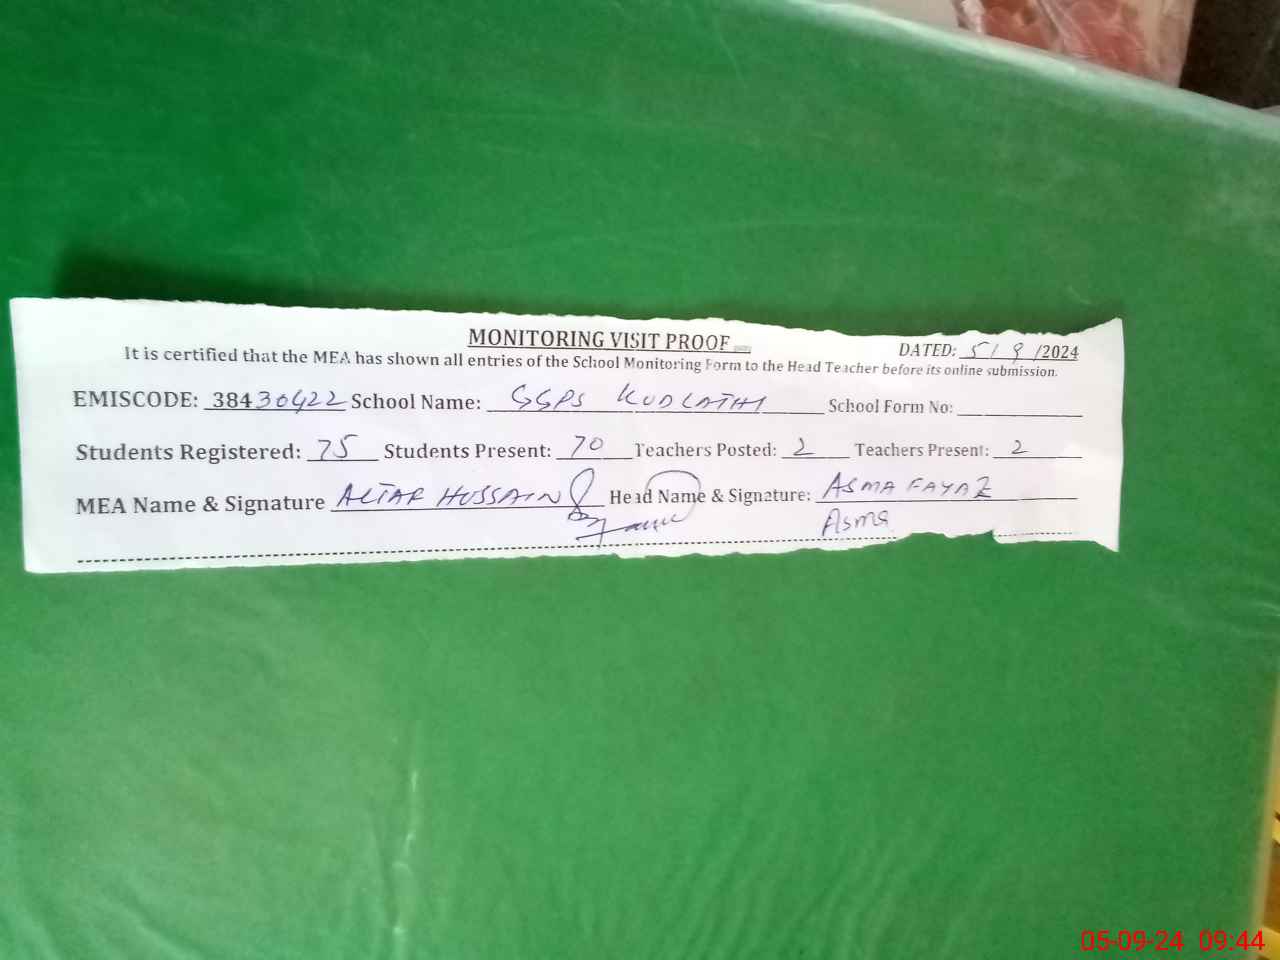 MONITORING VISIT PROOF
DATED: 5/9/2024
It is certified that the MEA has shown all entries of the School Monitoring Form to the Head Teacher before its online submission.
EMISCODE: 38430422 School Name: GGPS KUDLATHI School Form No:
Students Registered: 75 Students Present: 70 Teachers Posted: 2 Teachers Present: 2
MEA Name & Signature ALTAF HUSSAIN Head Name & Signature: ASMA FAYAZ
Asma
05-09-24 09:44